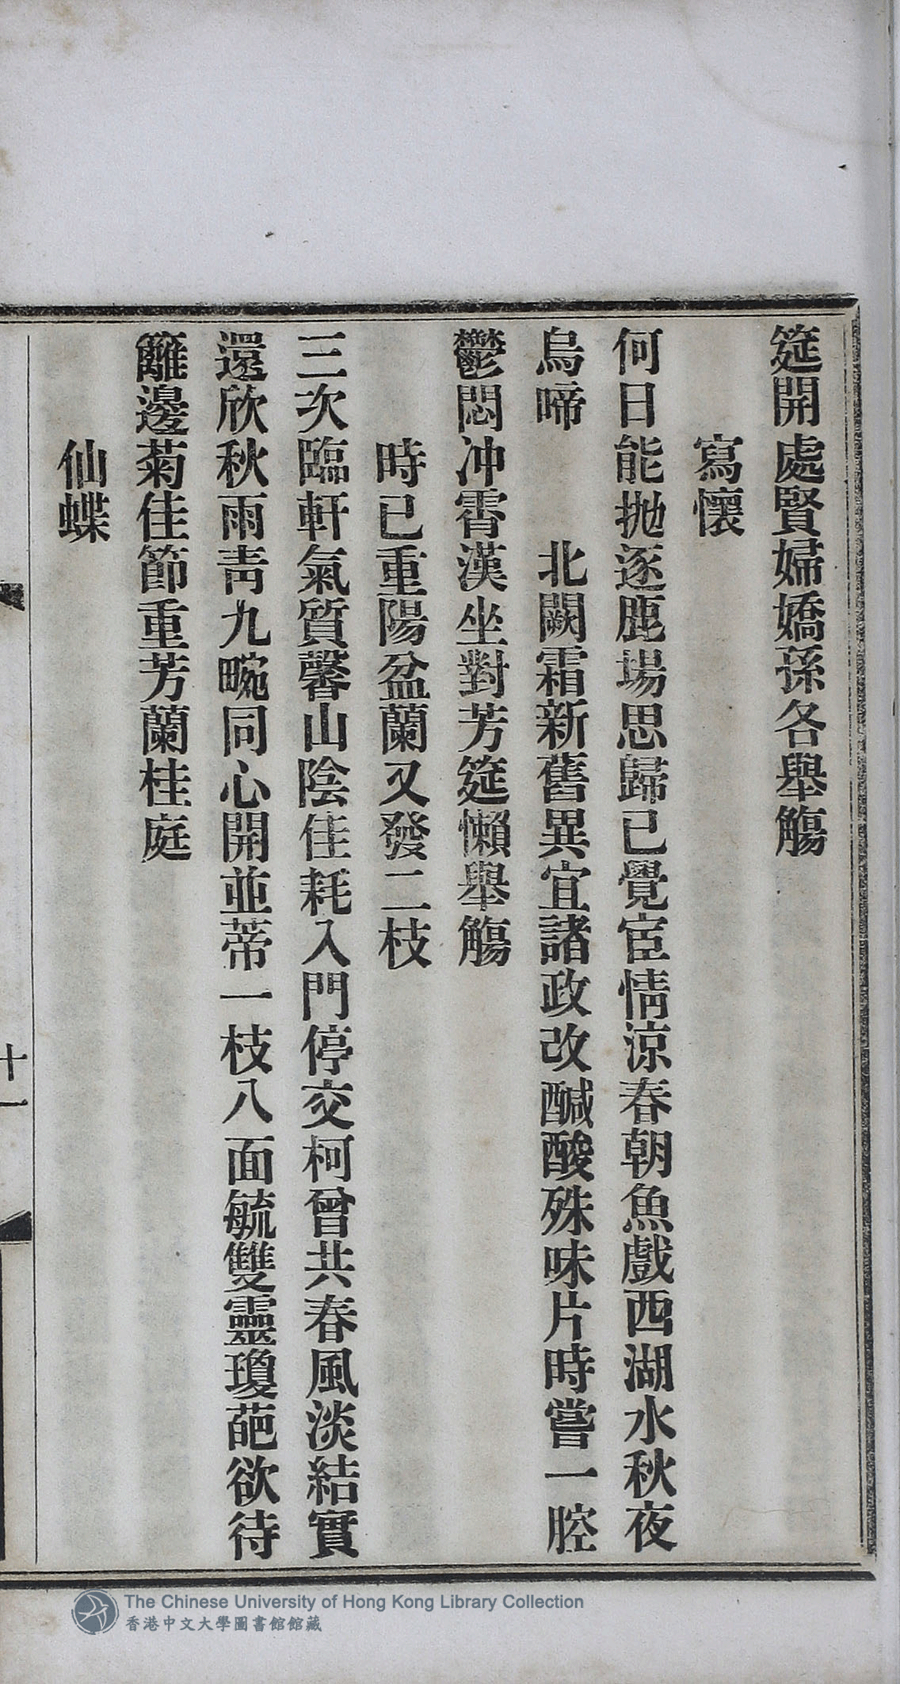 筵開處賢婦嬌孫各舉觴
寫懷
何日能抛逐鹿場思歸已覺宦情涼春朝魚戲西湖水秋夜
烏啼　北闕霜新舊異宜諸政改醎酸殊味片時嘗一腔
鬱悶冲霄漢坐對芳筵懶舉觴
時已重陽盆蘭又發二枝
三次臨軒氣質馨山陰佳耗入門停交柯曾共春風淡結實
還欣秋雨靑九畹同心開並蒂一枝八面毓雙靈瓊葩欲待
籬邊菊佳節重芳蘭桂庭
仙蝶
十一
The Chinese University of Hong Kong Library Collection
香港中文大學圖書館館藏